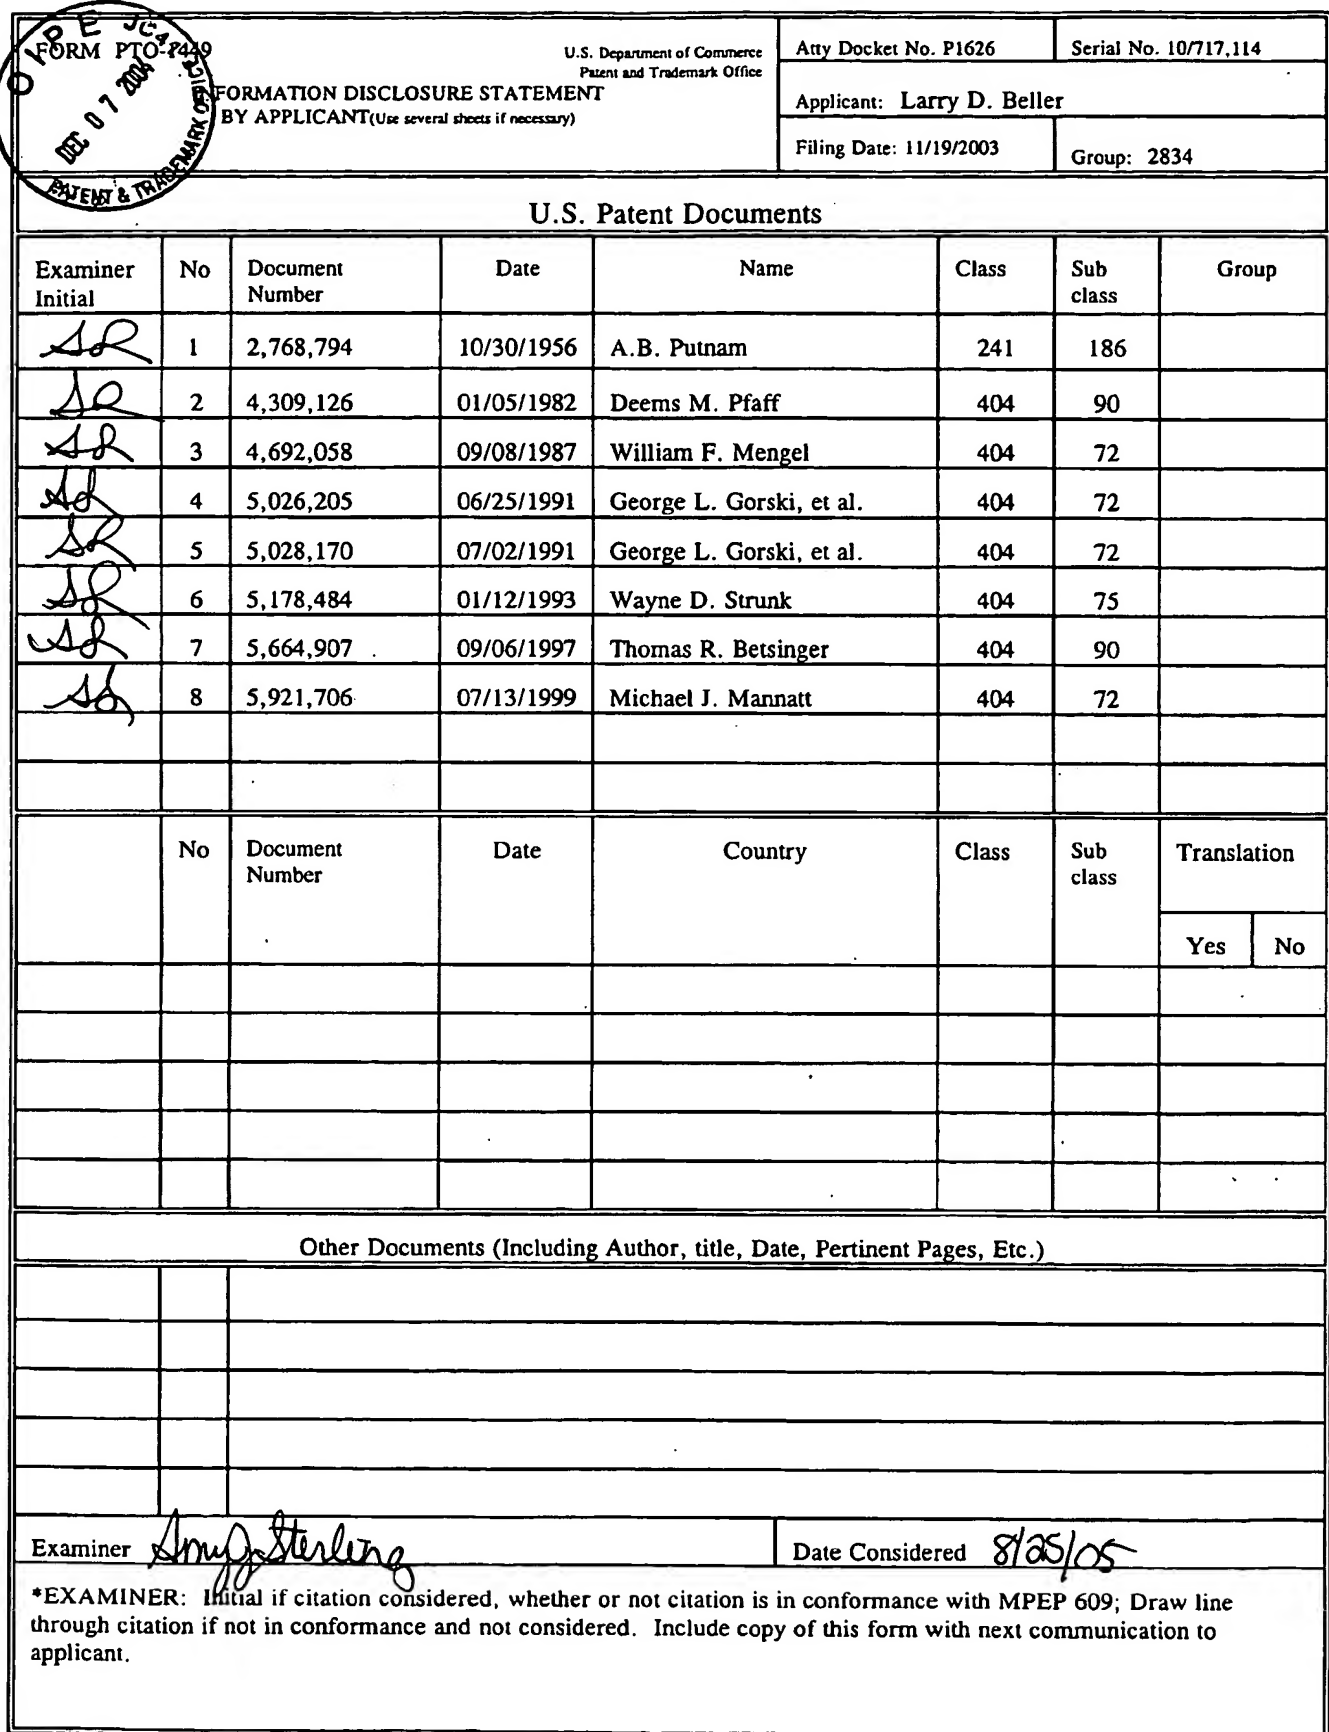 OIPE JC47
DEC 07 2004
PATENT & TRADEMARK OFFICE
FORM PTO-1449
U.S. Department of Commerce
Patent and Trademark Office
FORMATION DISCLOSURE STATEMENT
BY APPLICANT(Use several sheets if necessary)
Atty Docket No. P1626 Serial No. 10/717,114
Applicant: Larry D. Beller
Filing Date: 11/19/2003 Group: 2834
U.S. Patent Documents
Examiner No Document Date Name Class Sub Group
Initial Number class
1 2,768,794 10/30/1956 A.B. Putnam 241 186
2 4,309,126 01/05/1982 Deems M. Pfaff 404 90
3 4,692,058 09/08/1987 William F. Mengel 404 72
4 5,026,205 06/25/1991 George L. Gorski, et al. 404 72
5 5,028,170 07/02/1991 George L. Gorski, et al. 404 72
6 5,178,484 01/12/1993 Wayne D. Strunk 404 75
7 5,664,907 09/06/1997 Thomas R. Betsinger 404 90
8 5,921,706 07/13/1999 Michael J. Mannatt 404 72
No Document Date Country Class Sub Translation
Number class
Yes No
Other Documents (Including Author, title, Date, Pertinent Pages, Etc.)
Examiner Amy J. Sterling Date Considered 8/25/05
*EXAMINER: Initial if citation considered, whether or not citation is in conformance with MPEP 609; Draw line
through citation if not in conformance and not considered. Include copy of this form with next communication to
applicant.